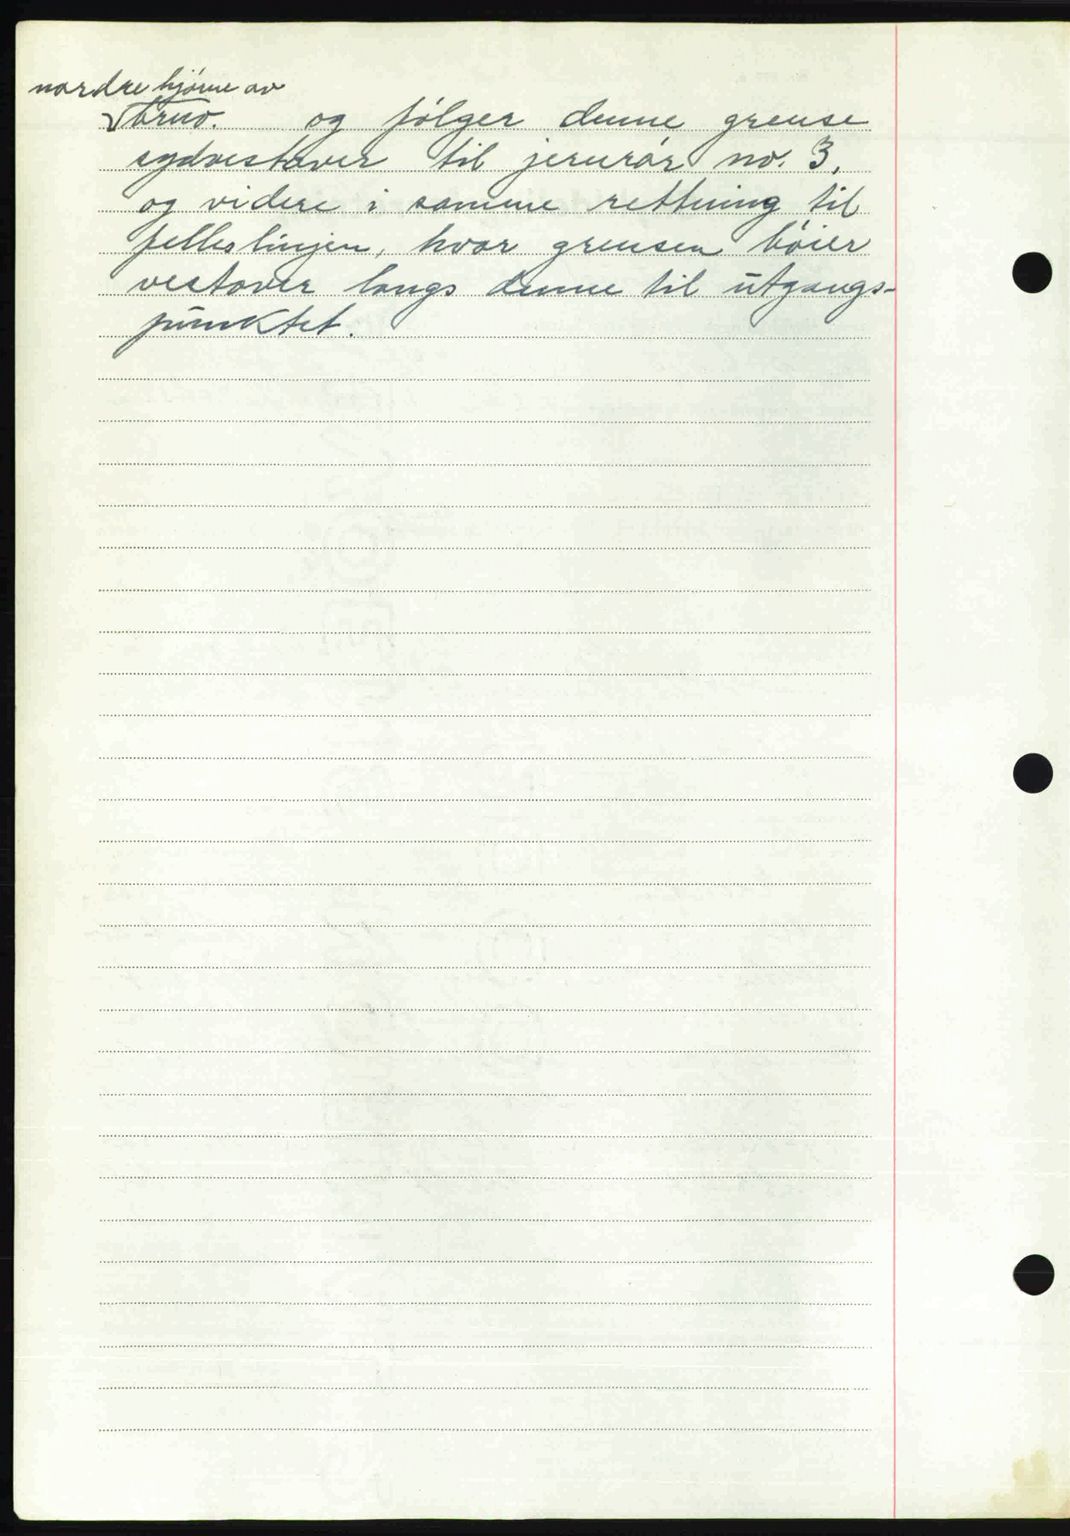 nordre hjørne av
og følger denne grense
sydvestover til jernrør no. 3,
og videre i samme rettning til
felleslinjen, hvor grensen bøier
vestover langs denne til utgangs-
punktet.